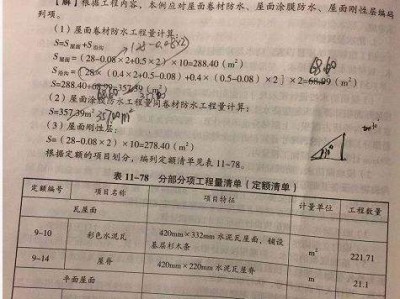 【解】根据工程内容，本例应对屋面卷材防水、屋面涂膜防水、屋面刚性层编码
列项。
（1）屋面卷材防水工程量计算：
S=S屋面+S泛水
(28-0.08×2)
S屋面=（28-0.08×2+0.5×2）×10=288.40（m²）
68.60
S泛水=［28×（0.4×2+0.5-0.08）+0.4×（0.5-0.08）×2］×2=68.99（m²）
S=288.40+68.99=357.39（m²）
68.60
（2）屋面涂膜防水工程量同卷材防水工程量计算：
S=357.39m² 357.00m²
（3）屋面刚性层：
S=（28-0.08×2）×10=278.40（m²）
根据定额的项目划分，编列定额清单见表11-78。
表 11-78 分部分项工程量清单（定额清单）
定额编号 项目名称 项目特征 计量单位 工程数量
瓦屋面
9-10 彩色水泥瓦 420mm×332mm 水泥瓦屋面，铺设基层杉木条 m² 221.71
9-14 屋脊 420mm×220mm 水泥瓦屋脊 m 21.1
平面屋面